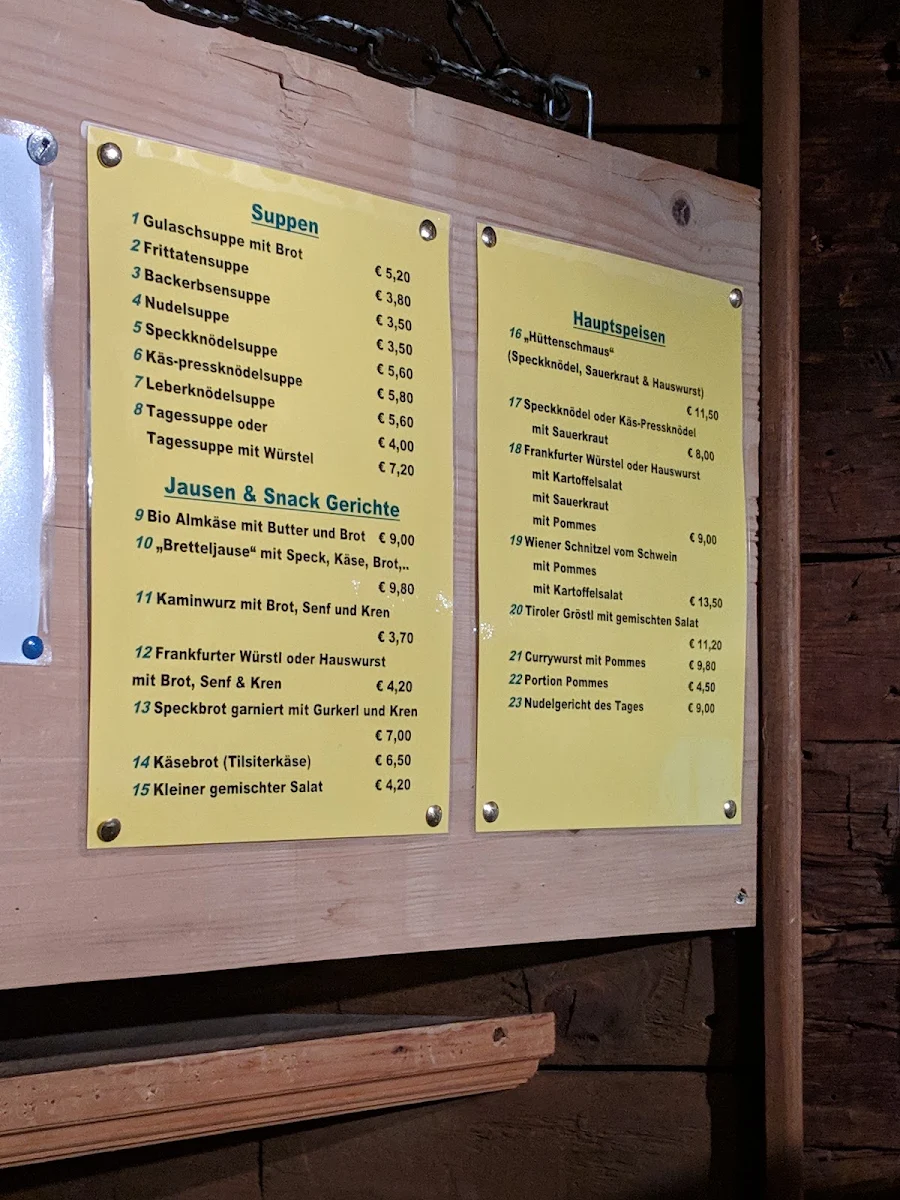 Suppen
1 Gulaschsuppe mit Brot € 5,20
2 Frittatensuppe € 3,80
3 Backerbsensuppe € 3,50
4 Nudelsuppe € 3,50
5 Speckknödelsuppe € 5,60
6 Käs-pressknödelsuppe € 5,80
7 Leberknödelsuppe € 5,60
8 Tagessuppe oder € 4,00
Tagessuppe mit Würstel € 7,20
Jausen & Snack Gerichte
9 Bio Almkäse mit Butter und Brot € 9,00
10 „Bretteljause“ mit Speck, Käse, Brot,..
€ 9,80
11 Kaminwurz mit Brot, Senf und Kren
€ 3,70
12 Frankfurter Würstl oder Hauswurst
mit Brot, Senf & Kren € 4,20
13 Speckbrot garniert mit Gurkerl und Kren
€ 7,00
14 Käsebrot (Tilsiterkäse) € 6,50
15 Kleiner gemischter Salat € 4,20
Hauptspeisen
16 „Hüttenschmaus“
(Speckknödel, Sauerkraut & Hauswurst)
€ 11,50
17 Speckknödel oder Käs-Pressknödel
mit Sauerkraut € 8,00
18 Frankfurter Würstel oder Hauswurst
mit Kartoffelsalat
mit Sauerkraut
mit Pommes € 9,00
19 Wiener Schnitzel vom Schwein
mit Pommes
mit Kartoffelsalat € 13,50
20 Tiroler Gröstl mit gemischten Salat
€ 11,20
21 Currywurst mit Pommes € 9,80
22 Portion Pommes € 4,50
23 Nudelgericht des Tages € 9,00